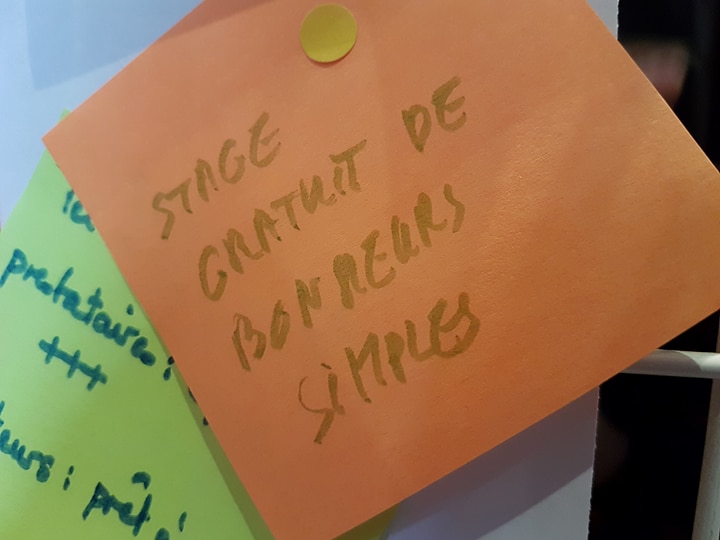 STAGE
GRATUIT DE
BONHEURS
SIMPLES
prestataires :
+++
eurs : prêt